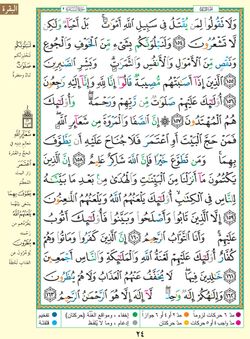 البقرة
وَلَا تَقُولُوا لِمَن يُقْتَلُ فِي سَبِيلِ اللَّهِ أَمْوَاتٌ بَلْ أَحْيَاءٌ وَلَٰكِن
لَّا تَشْعُرُونَ ١٥٤ وَلَنَبْلُوَنَّكُم بِشَيْءٍ مِّنَ الْخَوْفِ وَالْجُوعِ
وَنَقْصٍ مِّنَ الْأَمْوَالِ وَالْأَنفُسِ وَالثَّمَرَاتِ وَبَشِّرِ الصَّابِرِينَ
١٥٥ الَّذِينَ إِذَا أَصَابَتْهُم مُّصِيبَةٌ قَالُوا إِنَّا لِلَّهِ وَإِنَّا إِلَيْهِ رَاجِعُونَ
١٥٦ أُولَٰئِكَ عَلَيْهِمْ صَلَوَاتٌ مِّن رَّبِّهِمْ وَرَحْمَةٌ وَأُولَٰئِكَ
هُمُ الْمُهْتَدُونَ ١٥٧ إِنَّ الصَّفَا وَالْمَرْوَةَ مِن شَعَائِرِ اللَّهِ
فَمَنْ حَجَّ الْبَيْتَ أَوِ اعْتَمَرَ فَلَا جُنَاحَ عَلَيْهِ أَن يَطَّوَّفَ
بِهِمَا وَمَن تَطَوَّعَ خَيْرًا فَإِنَّ اللَّهَ شَاكِرٌ عَلِيمٌ ١٥٨ إِنَّ الَّذِينَ
يَكْتُمُونَ مَا أَنزَلْنَا مِنَ الْبَيِّنَاتِ وَالْهُدَىٰ مِن بَعْدِ مَا بَيَّنَّاهُ
لِلنَّاسِ فِي الْكِتَابِ أُولَٰئِكَ يَلْعَنُهُمُ اللَّهُ وَيَلْعَنُهُمُ اللَّاعِنُونَ
١٥٩ إِلَّا الَّذِينَ تَابُوا وَأَصْلَحُوا وَبَيَّنُوا فَأُولَٰئِكَ أَتُوبُ
عَلَيْهِمْ وَأَنَا التَّوَّابُ الرَّحِيمُ ١٦٠ إِنَّ الَّذِينَ كَفَرُوا وَمَاتُوا وَهُمْ
كُفَّارٌ أُولَٰئِكَ عَلَيْهِمْ لَعْنَةُ اللَّهِ وَالْمَلَائِكَةِ وَالنَّاسِ أَجْمَعِينَ
١٦١ خَالِدِينَ فِيهَا لَا يُخَفَّفُ عَنْهُمُ الْعَذَابُ وَلَا هُمْ يُنظَرُونَ
١٦٢ وَإِلَٰهُكُمْ إِلَٰهٌ وَاحِدٌ لَّا إِلَٰهَ إِلَّا هُوَ الرَّحْمَٰنُ الرَّحِيمُ ١٦٣
٢٤